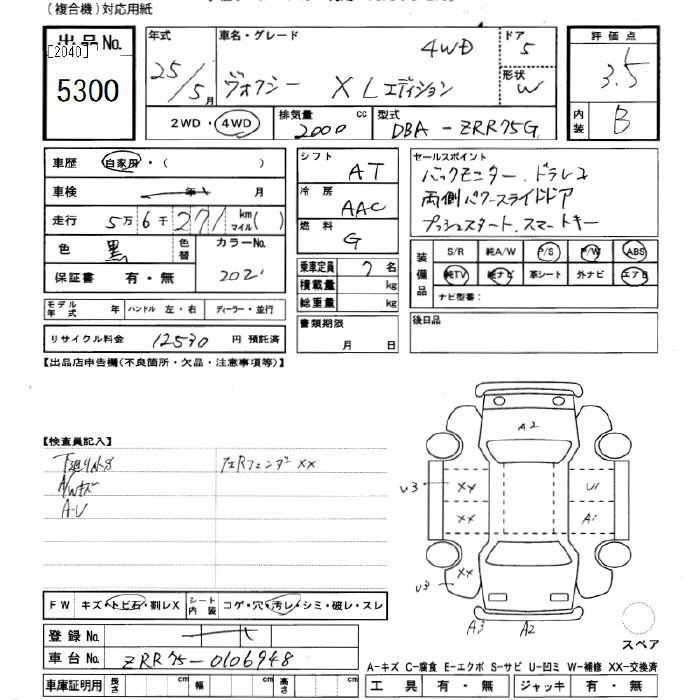 (複合機)対応用紙
出品No.
[2040]
5300
年式
25/5月
車名・グレード
4WD
ヴォクシー XLエディション
ドア
5
形状
W
評価点
3.5
内装
B
2WD・4WD
排気量
2000 cc
型式
DBA-ZRR75G
車歴 自家用・( )
車検 年 月
走行 5万6千271km マイル( )
色 黒 色替 カラーNo.
202
保証書 有・無
モデル年式 年 ハンドル 左・右 ディーラー・並行
リサイクル料金 12530円 預託済
シフト
AT
冷房
AAC
燃料
G
乗車定員 7名
積載量 kg
総重量 kg
書類期限
月 日
セールスポイント
バックモニター.ドラレコ
両側パワースライドドア
プッシュスタート.スマートキー
装備品
S/R 純A/W P/S P/W ABS
純TV 純ナビ 革シート 外ナビ エアB
ナビ型番:
後日品
【出品店申告欄(不良箇所・欠品・注意事項等)】
【検査員記入】
A/Wキズ
A-U
フェンダー XX
FW キズ・トビ石・割レX シート内装 コゲ・穴・汚レ・シミ・破レ・スレ
登録No.
車台No. ZRR75-0106948
車庫証明用 長さ cm 幅 cm 高さ cm
A2
U3 XX U1
XX A1
U3 XX
A3 A2
スペア
A-キズ C-腐食 E-エクボ S-サビ U-凹ミ W-補修 XX-交換済
工具 有・無 ジャッキ 有・無